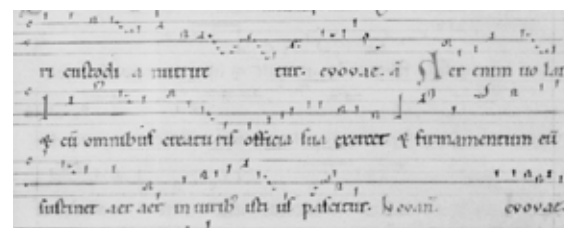 ri custodi a nutrire tur. evovae. a Aer enim uolat
& cũ omnibus creaturis officia sua exercet & firmamentum eũ
sustinet aer aer in uirib istius pascitur. evovae.